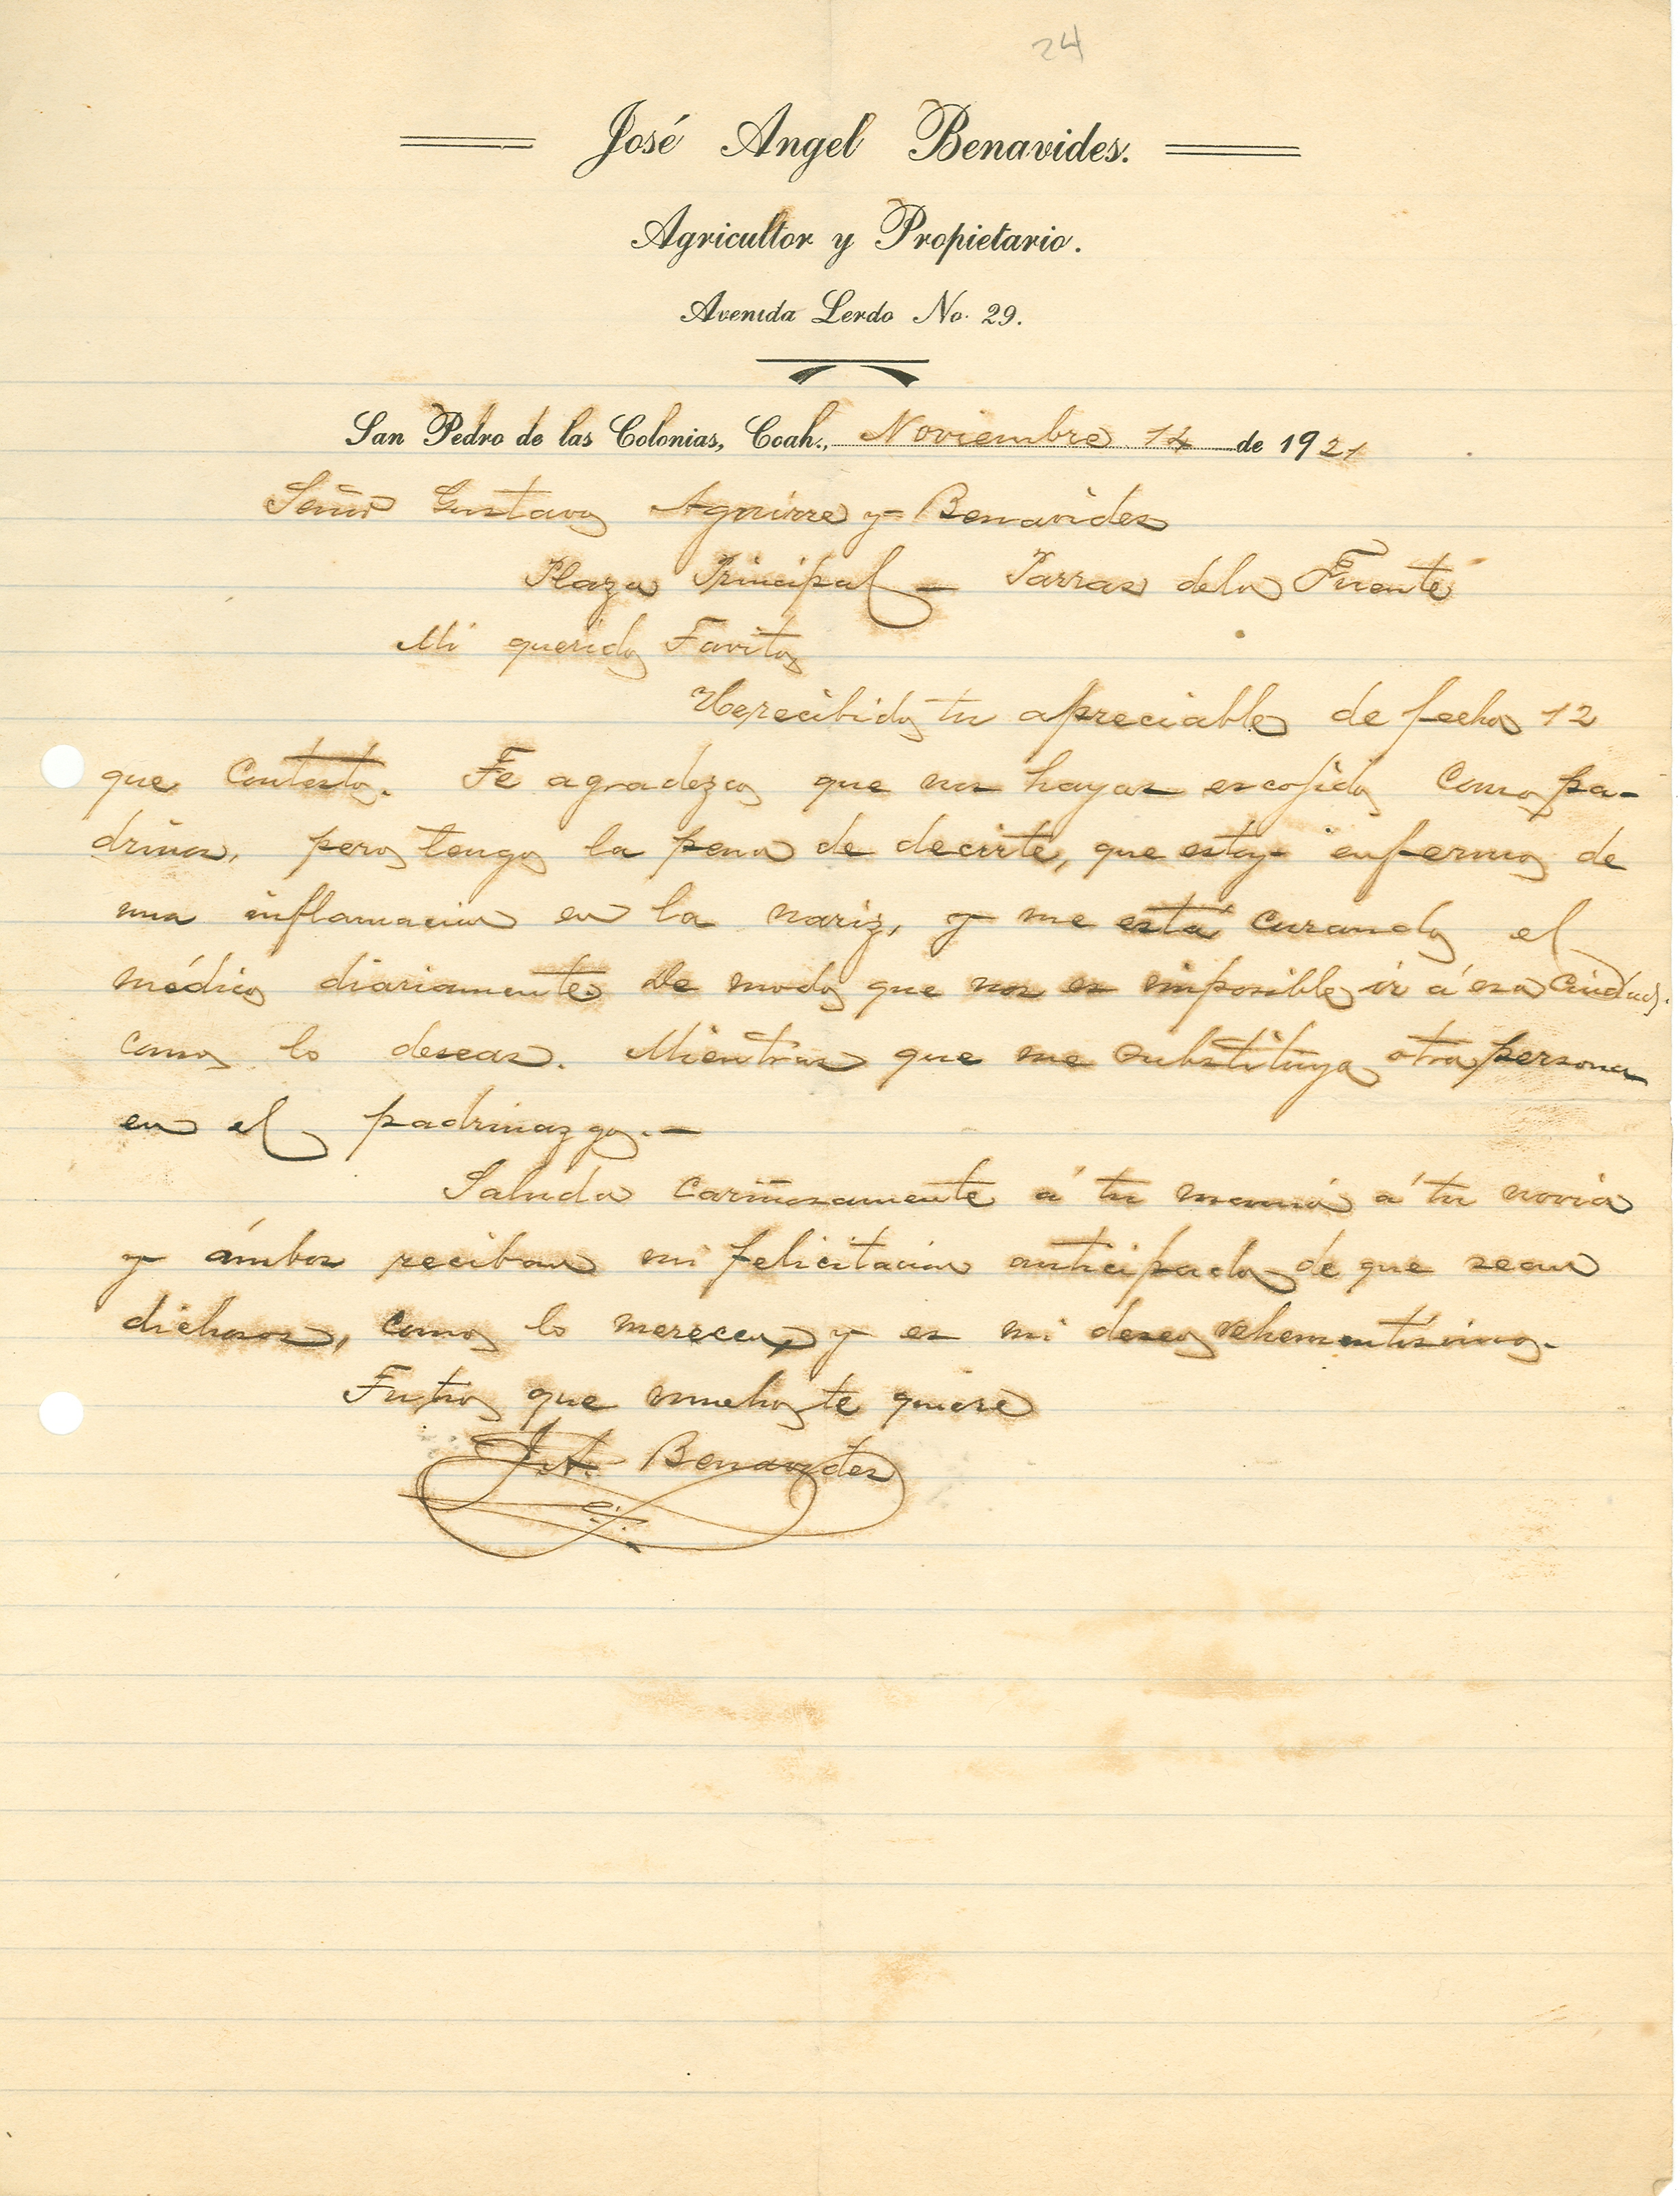 24
José Angel Benavides.
Agricultor y Propietario.
Avenida Lerdo No. 29.
San Pedro de las Colonias, Coah., Noviembre 14 de 1921
Señor Gustavo Aguirre y Benavides
Plaza Principal — Parras de la Fuente
Mi querido Tavito
He recibido tu apreciable de fecha 12
que contesto. Te agradezco que me hayas escojido como pa-
drino, pero tengo la pena de decirte, que estoy enfermo de
una inflamacion en la nariz, y me está curando el
médico diariamente de modo que me es imposible ir á esa Ciudad.
como lo deseas. Mientras que me substituya otra persona
en el padrinazgo.—
Saluda cariñosamente á tu mamá á tu novia
y ámbos reciban mi felicitacion anticipada de que sean
dichosos, como lo merecen, y es mi deseo vehementísimo.
Tu tio que mucho te quiere
J. A. Benavides